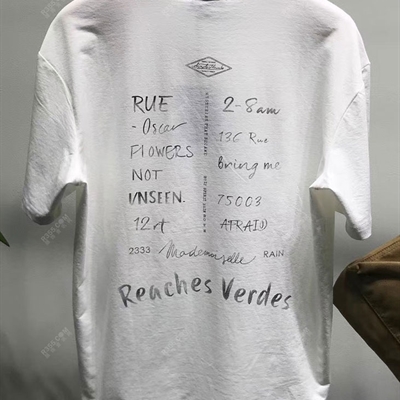 RUE
- Oscar
FLOWERS
NOT
UNSEEN.
12 rt
2-8am
136 Rue
Bring me
75003
AFRAID
2333 Mademuselle RAIN
Reaches Verdes